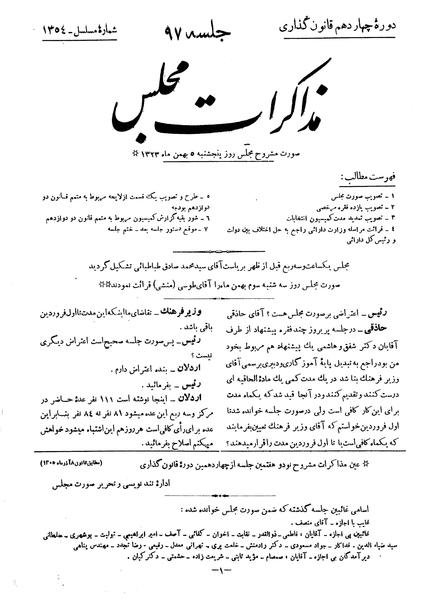 دورهٔ چهاردهم قانون گذاری
جلسه ۹۷
شمارهٔ مسلسل - ۱۳۵۴
مذاکرات مجلس
صورت مشروح مجلس روز پنجشنبه ۵ بهمن ماه ۱۳۲۳ ※
فهرست مطالب:
۱ - تصویب صورت مجلس
۲ - تصویب یازده فقره مرخصی
۳ - تصویب تمدید مدت کمیسیون انتخابات
۴ - قرائت مراسله وزارت دارائی راجع به حل اختلاف بین دولت
و رئیس کل دارائی
۵ - طرح و تصویب یک قسمت از لایحه مربوط به متمم قسانون دو
دوازدهم بودجه
۶ - شور بقیه گزارش کمیسیون مربوط به متمم قانون دو دوازدهم
۷ - موقع و دستور جلسه بعد - ختم جلسه
مجلس یکساعت و سه ربع قبل از ظهر بریاست آقای سیدمحمد صادق طباطبائی تشکیل گردید
صورت مجلس روز سه شنبه سوم بهمن ماه را آقای طوسی (منشی) قرائت نمودند※
رئیس - اعتراضی بر صورت مجلس هست؟ آقای حاذقی
حاذقی - در جلسه پریروز چند فقره پیشنهاد از طرف
آقایان دکتر شفق و هاشمی یک پیشنهاد هم مربوط بخود
من بود راجع به تبدیل پایهٔ آموزگاری و دبیری رسمی آقای
وزیر فرهنگ بنا شد در یک مدت کمی یک مادهٔ الحاقیه ای
درست کنند و تقدیم کنند و در آنجا قید شد که یکماه مدت
برای این کار کافی است ولی در صورت جلسه خوانده شد تا
اول فروردین خواستم که آقای وزیر فرهنگ تعیین بفرمایند
که یکماه کافی است یا تا اول فروردین مدت را قرار میدهند؟
وزیر فرهنگ - تقاضای ما اینکه این مدت تا اول فروردین
باقی باشد.
رئیس - پس صورت جلسه صحیح است اعتراض دیگری
نیست؟
اردلان - بنده اعتراض دارم.
رئیس - بفرمائید.
اردلان - اینجا نوشته است ۱۱۱ نفر عدهٔ حاضر در
مرکز و سه ربع این عده میشود ۸۱ نفر نه ۸۴ نفر بنابر این
عده برای رأی کافی است هر روز هم این اشتباه میشود خواهش
میکنم اصلاح بفرمائید.
※ عین مذاکرات مشروح نود و هفتمین جلسه از چهاردهمین دوره قانون گذاری
(مطابق قانون ۸ آذر ماه ۱۳۰۵)
ادارهٔ تند نویسی و تحریر صورت مجلس
اسامی غائبین جلسه گذشته که ضمن صورت مجلس خوانده شده:
غایب با اجازه - آقای منصف.
غائبین بی اجازه - آقایان: فاطمی - ذوالقدر - نقابت - اخوان - کفائی - آصف - امیر ابراهیمی - تولیت - بوشهری - سلطانی
سید ضیاءالدین - فداکار - جواد مسعودی - دکتر رادمنش - خلعت بری - تهرانی - معدل - رفیعی - رضا تجدد - مهندس پناهی
دیر آمدگان بی اجازه - آقایان، صمصام - مؤید ثابتی - شریعت زاده - حشمتی - دکتر کیان.
-۱-